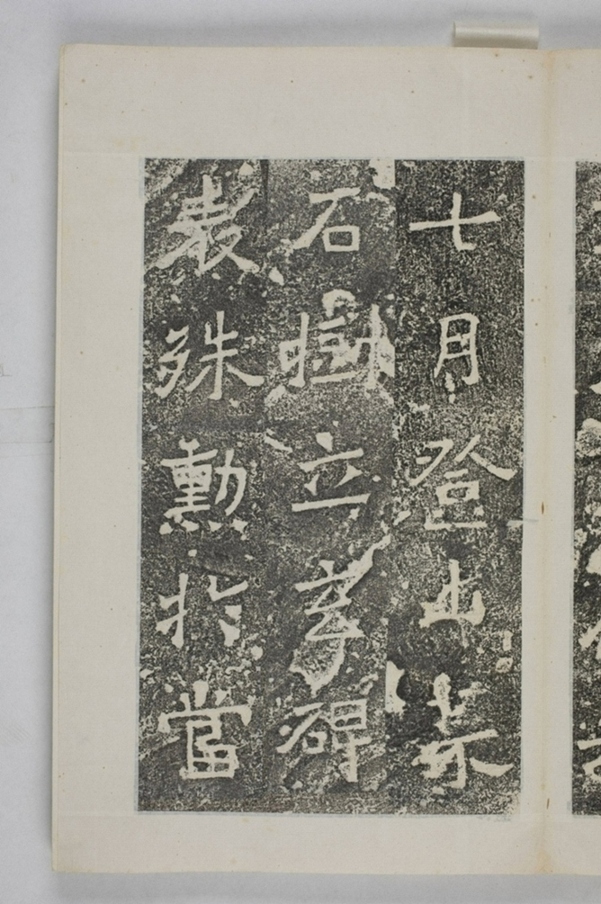 七月登山采
石樹立玄碑
表殊勲於當